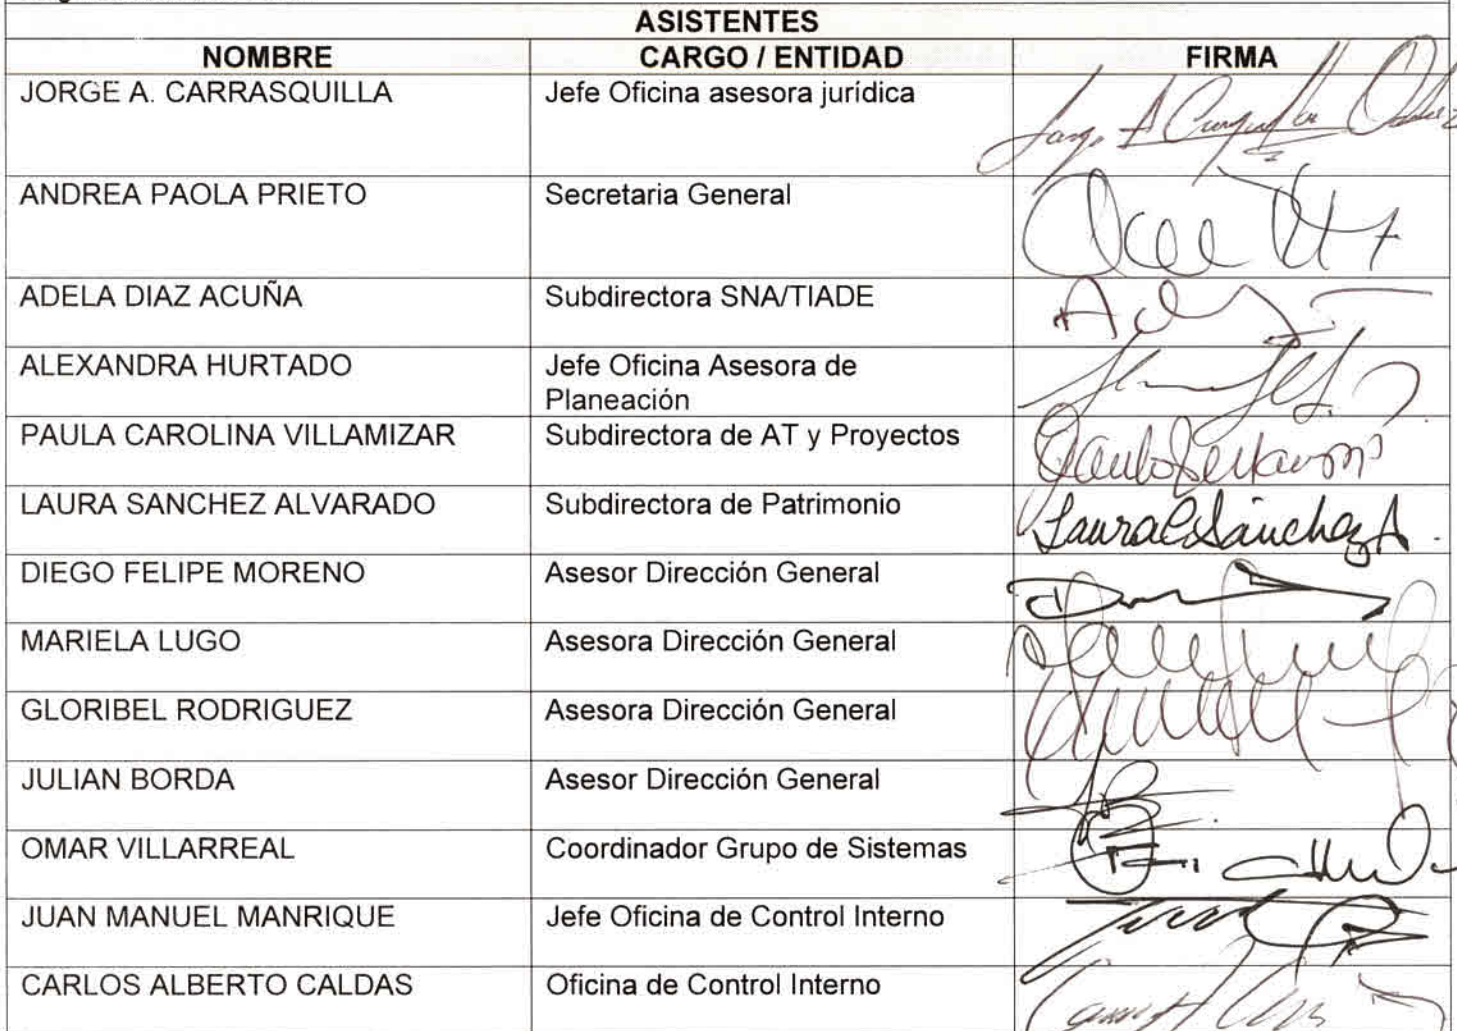 ASISTENTES
NOMBRE CARGO / ENTIDAD FIRMA
JORGE A. CARRASQUILLA Jefe Oficina asesora jurídica
ANDREA PAOLA PRIETO Secretaria General
ADELA DIAZ ACUÑA Subdirectora SNA/TIADE
ALEXANDRA HURTADO Jefe Oficina Asesora de
Planeación
PAULA CAROLINA VILLAMIZAR Subdirectora de AT y Proyectos
LAURA SANCHEZ ALVARADO Subdirectora de Patrimonio Laura C Sánchez A.
DIEGO FELIPE MORENO Asesor Dirección General
MARIELA LUGO Asesora Dirección General
GLORIBEL RODRIGUEZ Asesora Dirección General
JULIAN BORDA Asesor Dirección General
OMAR VILLARREAL Coordinador Grupo de Sistemas
JUAN MANUEL MANRIQUE Jefe Oficina de Control Interno
CARLOS ALBERTO CALDAS Oficina de Control Interno